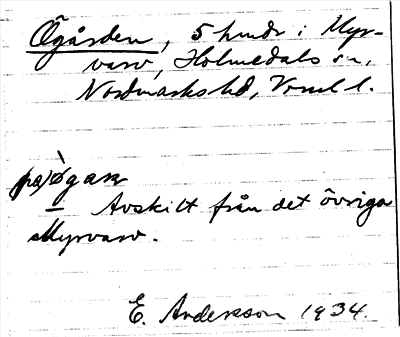 Ögården, 5 hmdr i Myr-
varv, Holmedals sn,
Nordmarks hd, Vrml l.
på) øgaɳ
Avskilt från det övriga
Myrvarv.
E. Andersson 1934.